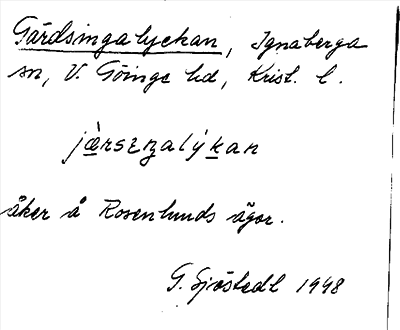 Gärdsingalyckan, Ignaberga
sn, V. Göinge hd, Krist. l.
jæ̀rsɛŋalýkan
åker å Rosenlunds ägor.
G. Sjöstedt 1948